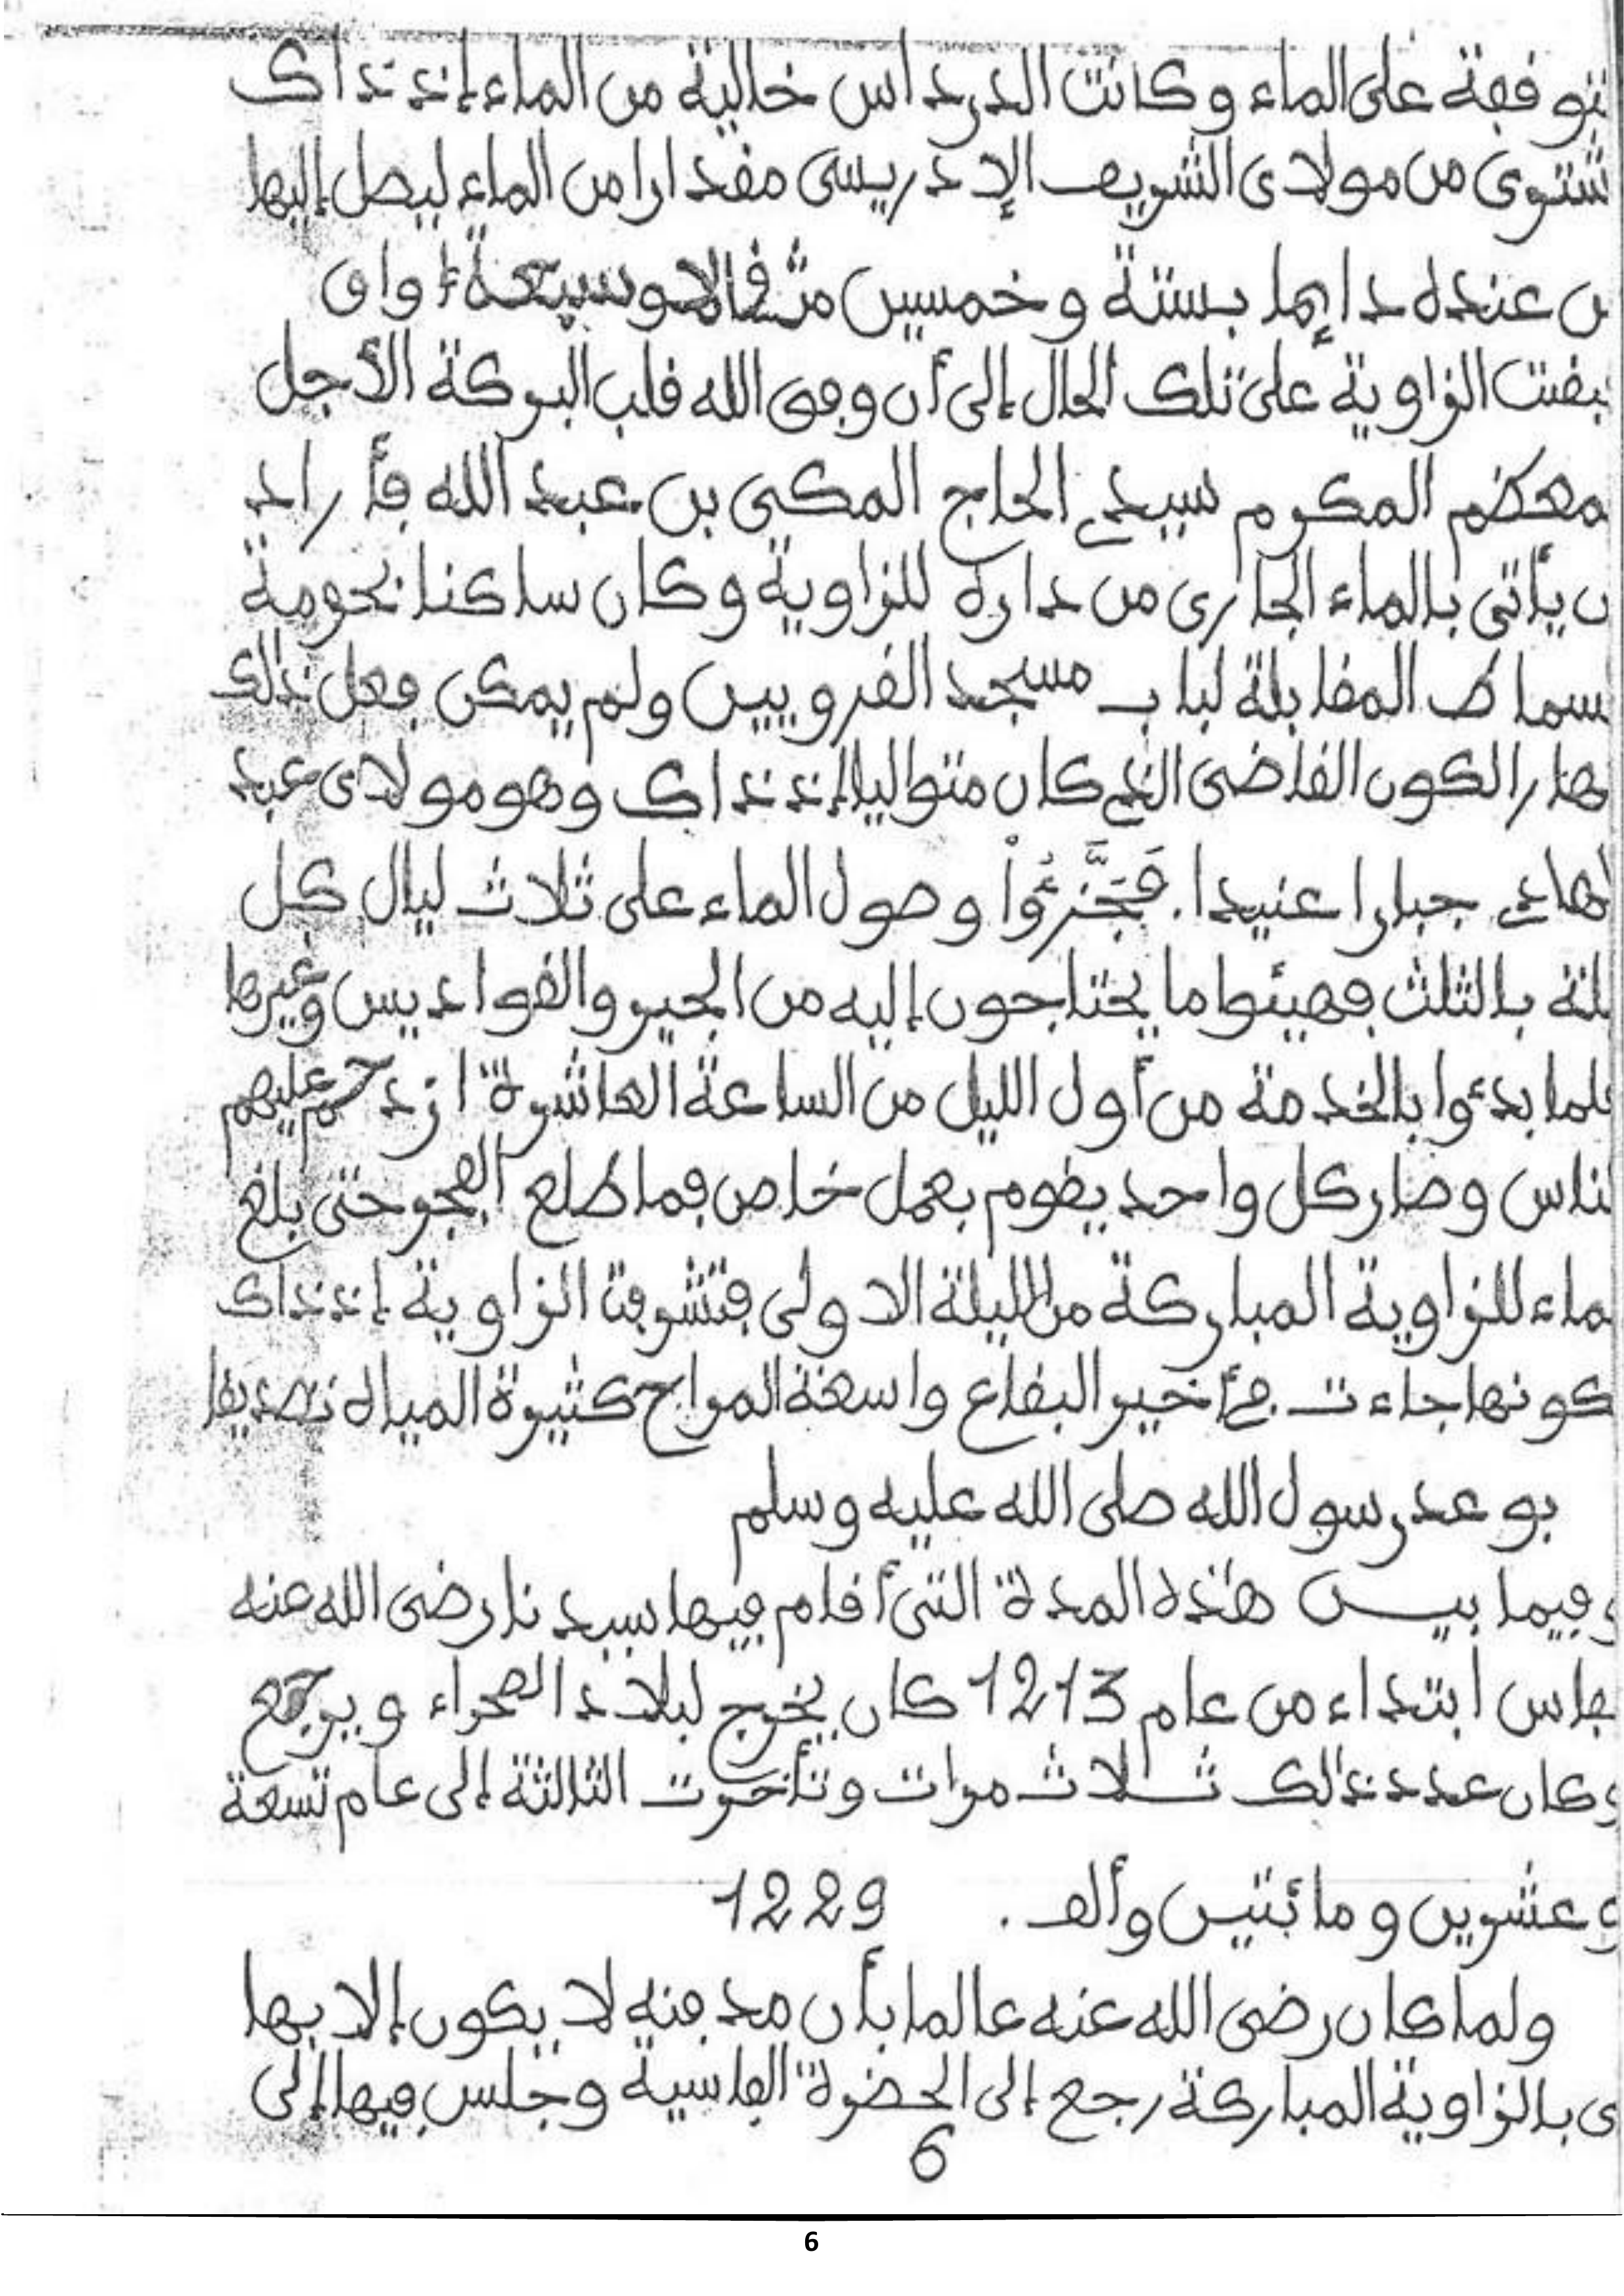 توقفة على الماء وكانت الدرداس خالية من الماء إذ ذاك
شترى من مولاى الشريف الإدريسى مقدارا من الماء ليصل إليها
ن عنده دايما بستة وخمسين مثقالا وسبعة أواق
بقت الزاوية على تلك الحال إلى أن وفق الله قلب البركة الأجل
معظم المكرم سيدي الحاج المكى بن عبد الله فأراد
ن يأتى بالماء الجارى من داره للزاوية وكان ساكنا بحومة
سماط المقابلة لباب مسجد القرويين ولم يمكن فعل ذلك
هارا لكون القاضى الذي كان متواليا إذ ذاك وهو مولاى عبد
لهادي جبارا عنيدا. فَجَزَّءُواْ وصول الماء على ثلاث ليال كل
يلة بالثلث فهيئوا ما يحتاجون إليه من الجير والقواديس وغيرها
لما بدءوا بالخدمة من أول الليل من الساعة العاشرة ازدحم عليهم
لناس وصار كل واحد يقوم بعمل خاص فما طلع الفجر حتى بلغ
ماء للزاوية المباركة من الليلة الاولى فتشرفت الزاوية إذ ذاك
كونها جاءت في أخير البقاع واسعة المرابح كثيرة المياه تصديقا
بوعد رسول الله صلى الله عليه وسلم
وفيما بيــن هذه المدة التى أقام فيها سيدنا رضى الله عنه
بفاس ابتداء من عام 1213 كان يخرج لبلاد الصحراء ويرجع
وكان عدد ذالك ثــلاث مرات وتأخرت الثالثة إلى عام تسعة
وعشرين ومائتين وألف . 1229
ولما كان رضى الله عنه عالما بأن مدفنه لا يكون إلا بها
ى بالزاوية المباركة رجع إلى الحضرة الفاسية وجلس فيها إلى
6
6